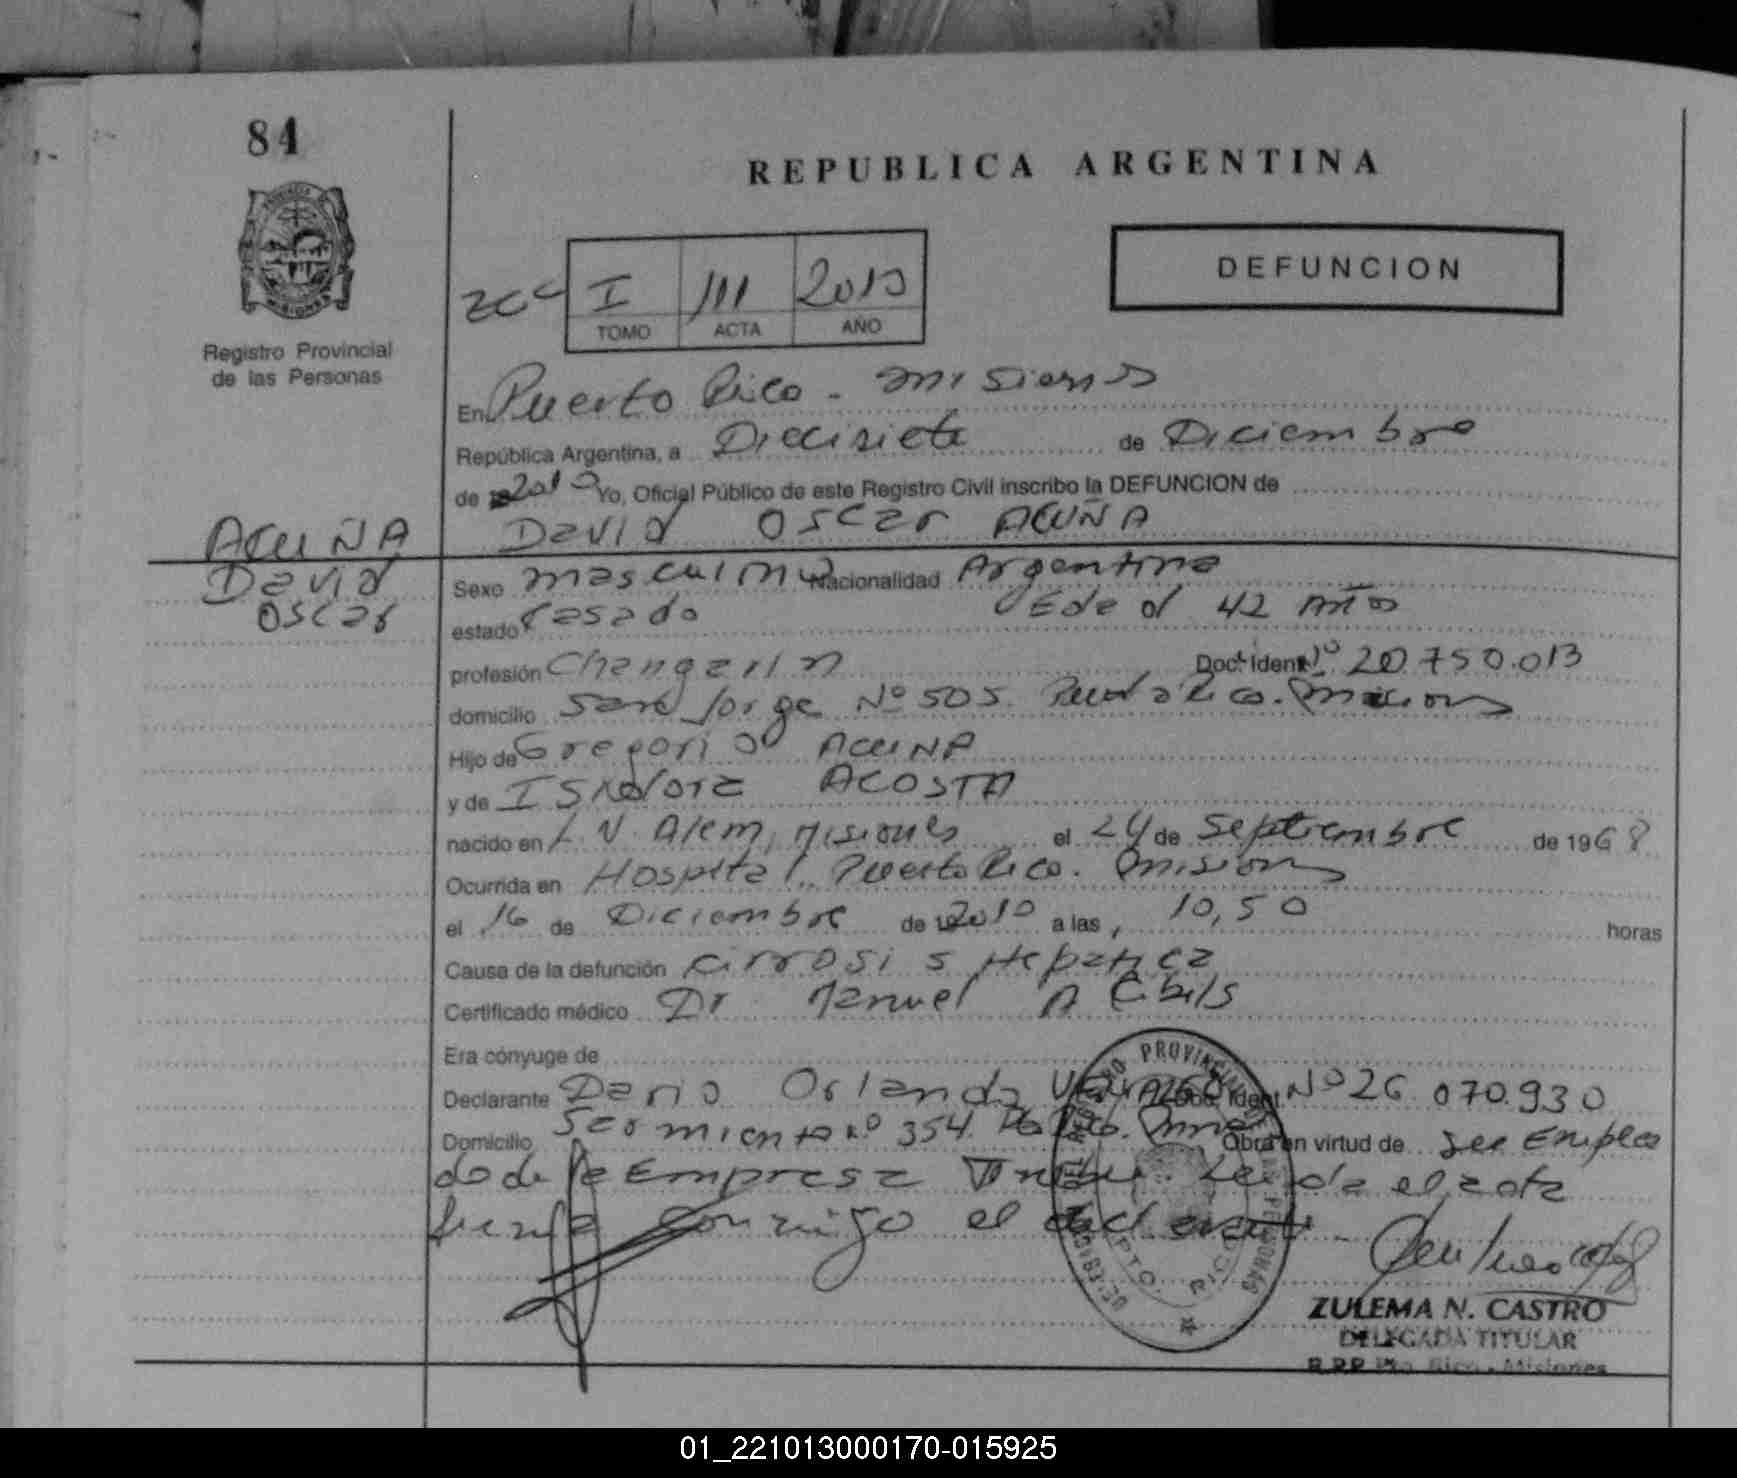 84
REPUBLICA ARGENTINA
DEFUNCION
I 111 2010
TOMO ACTA AÑO
Registro Provincial
de las Personas
En Puerto Rico - Misiones
República Argentina, a Diecisiete de Diciembre
de 2010 Yo, Oficial Público de este Registro Civil inscribo la DEFUNCION de
David Oscar ACUÑA
ACUÑA
David
Oscar
Sexo masculino Nacionalidad Argentina
estado Casado Edad 42 Años
profesión Changarin Doc. Ident. Nº 20.750.013
domicilio San Jorge Nº 505. Puerto Rico. Misiones
Hijo de Gregorio ACUÑA
y de ISIDORA ACOSTA
nacido en L. N. Alem, Misiones el 24 de Septiembre de 1968
Ocurrida en Hospital Puerto Rico. Misiones
el 16 de Diciembre de 2010 a las, 10,50 horas
Causa de la defunción Cirrosis Hepatica
Certificado médico Dr. Manuel A Cibils
Era cónyuge de
Declarante Dario Orlando Doc. Ident. Nº 26.070.930
Domicilio Sarmiento Nº 354. Pto Rico. Mnes Obra en virtud de ser Emplea
do de la Empresa Leida el acta
firma conmigo el declarante
REGISTRO PROVINCIAL DE LAS PERSONAS
PTO. RICO
ZULEMA N. CASTRO
DELEGADA TITULAR
R.P.P Pto. Rico - Misiones
PROVINCIA
MISIONES
01_221013000170-015925